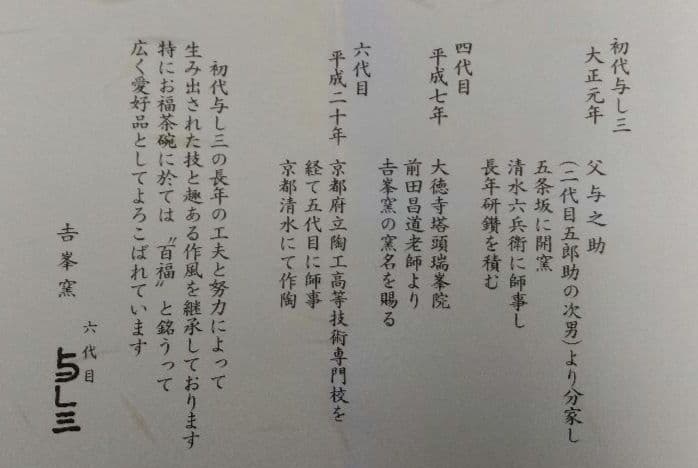 初代与し三
大正元年
父与之助
(二代目五郎助の次男)より分家し
五条坂に開窯
清水六兵衛に師事し
長年研鑽を積む
四代目
平成七年
大徳寺塔頭瑞峯院
前田昌道老師より
𠮷峯窯の窯名を賜る
六代目
平成二十年
京都府立陶工高等技術専門校を
経て五代目に師事
京都清水にて作陶
初代与し三の長年の工夫と努力によって
生み出された技と趣ある作風を継承しております
特にお福茶碗に於ては〝百福〟と銘うって
広く愛好品としてよろこばれています
𠮷峯窯
六代目
与し三